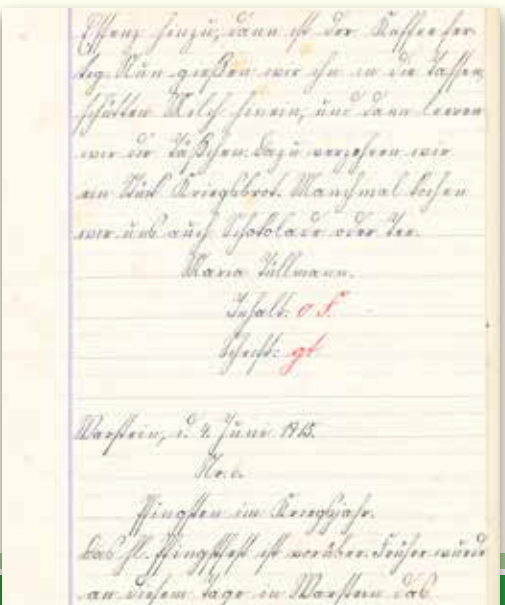 Essenz hinzu, dann ist der Kaffee fer-
tig. Nun gießen wir ihn in die Tassen,
schütten Milch hinein, und dann leeren
wir die Täßchen. Dazu verzehren wir
ein Stück Kriegsbrot. Manchmal kochen
wir uns auch Schokolade oder Tee.
Maria Tüllmann.
Inhalt: o F.
Schrift: gt
Warstein, d. 9. Juni 1915.
Pfingsten im Kriegsjahr.
Das hl. Pfingstfest ist vorüber. Früher wurde
an diesem Tage in Warstein das